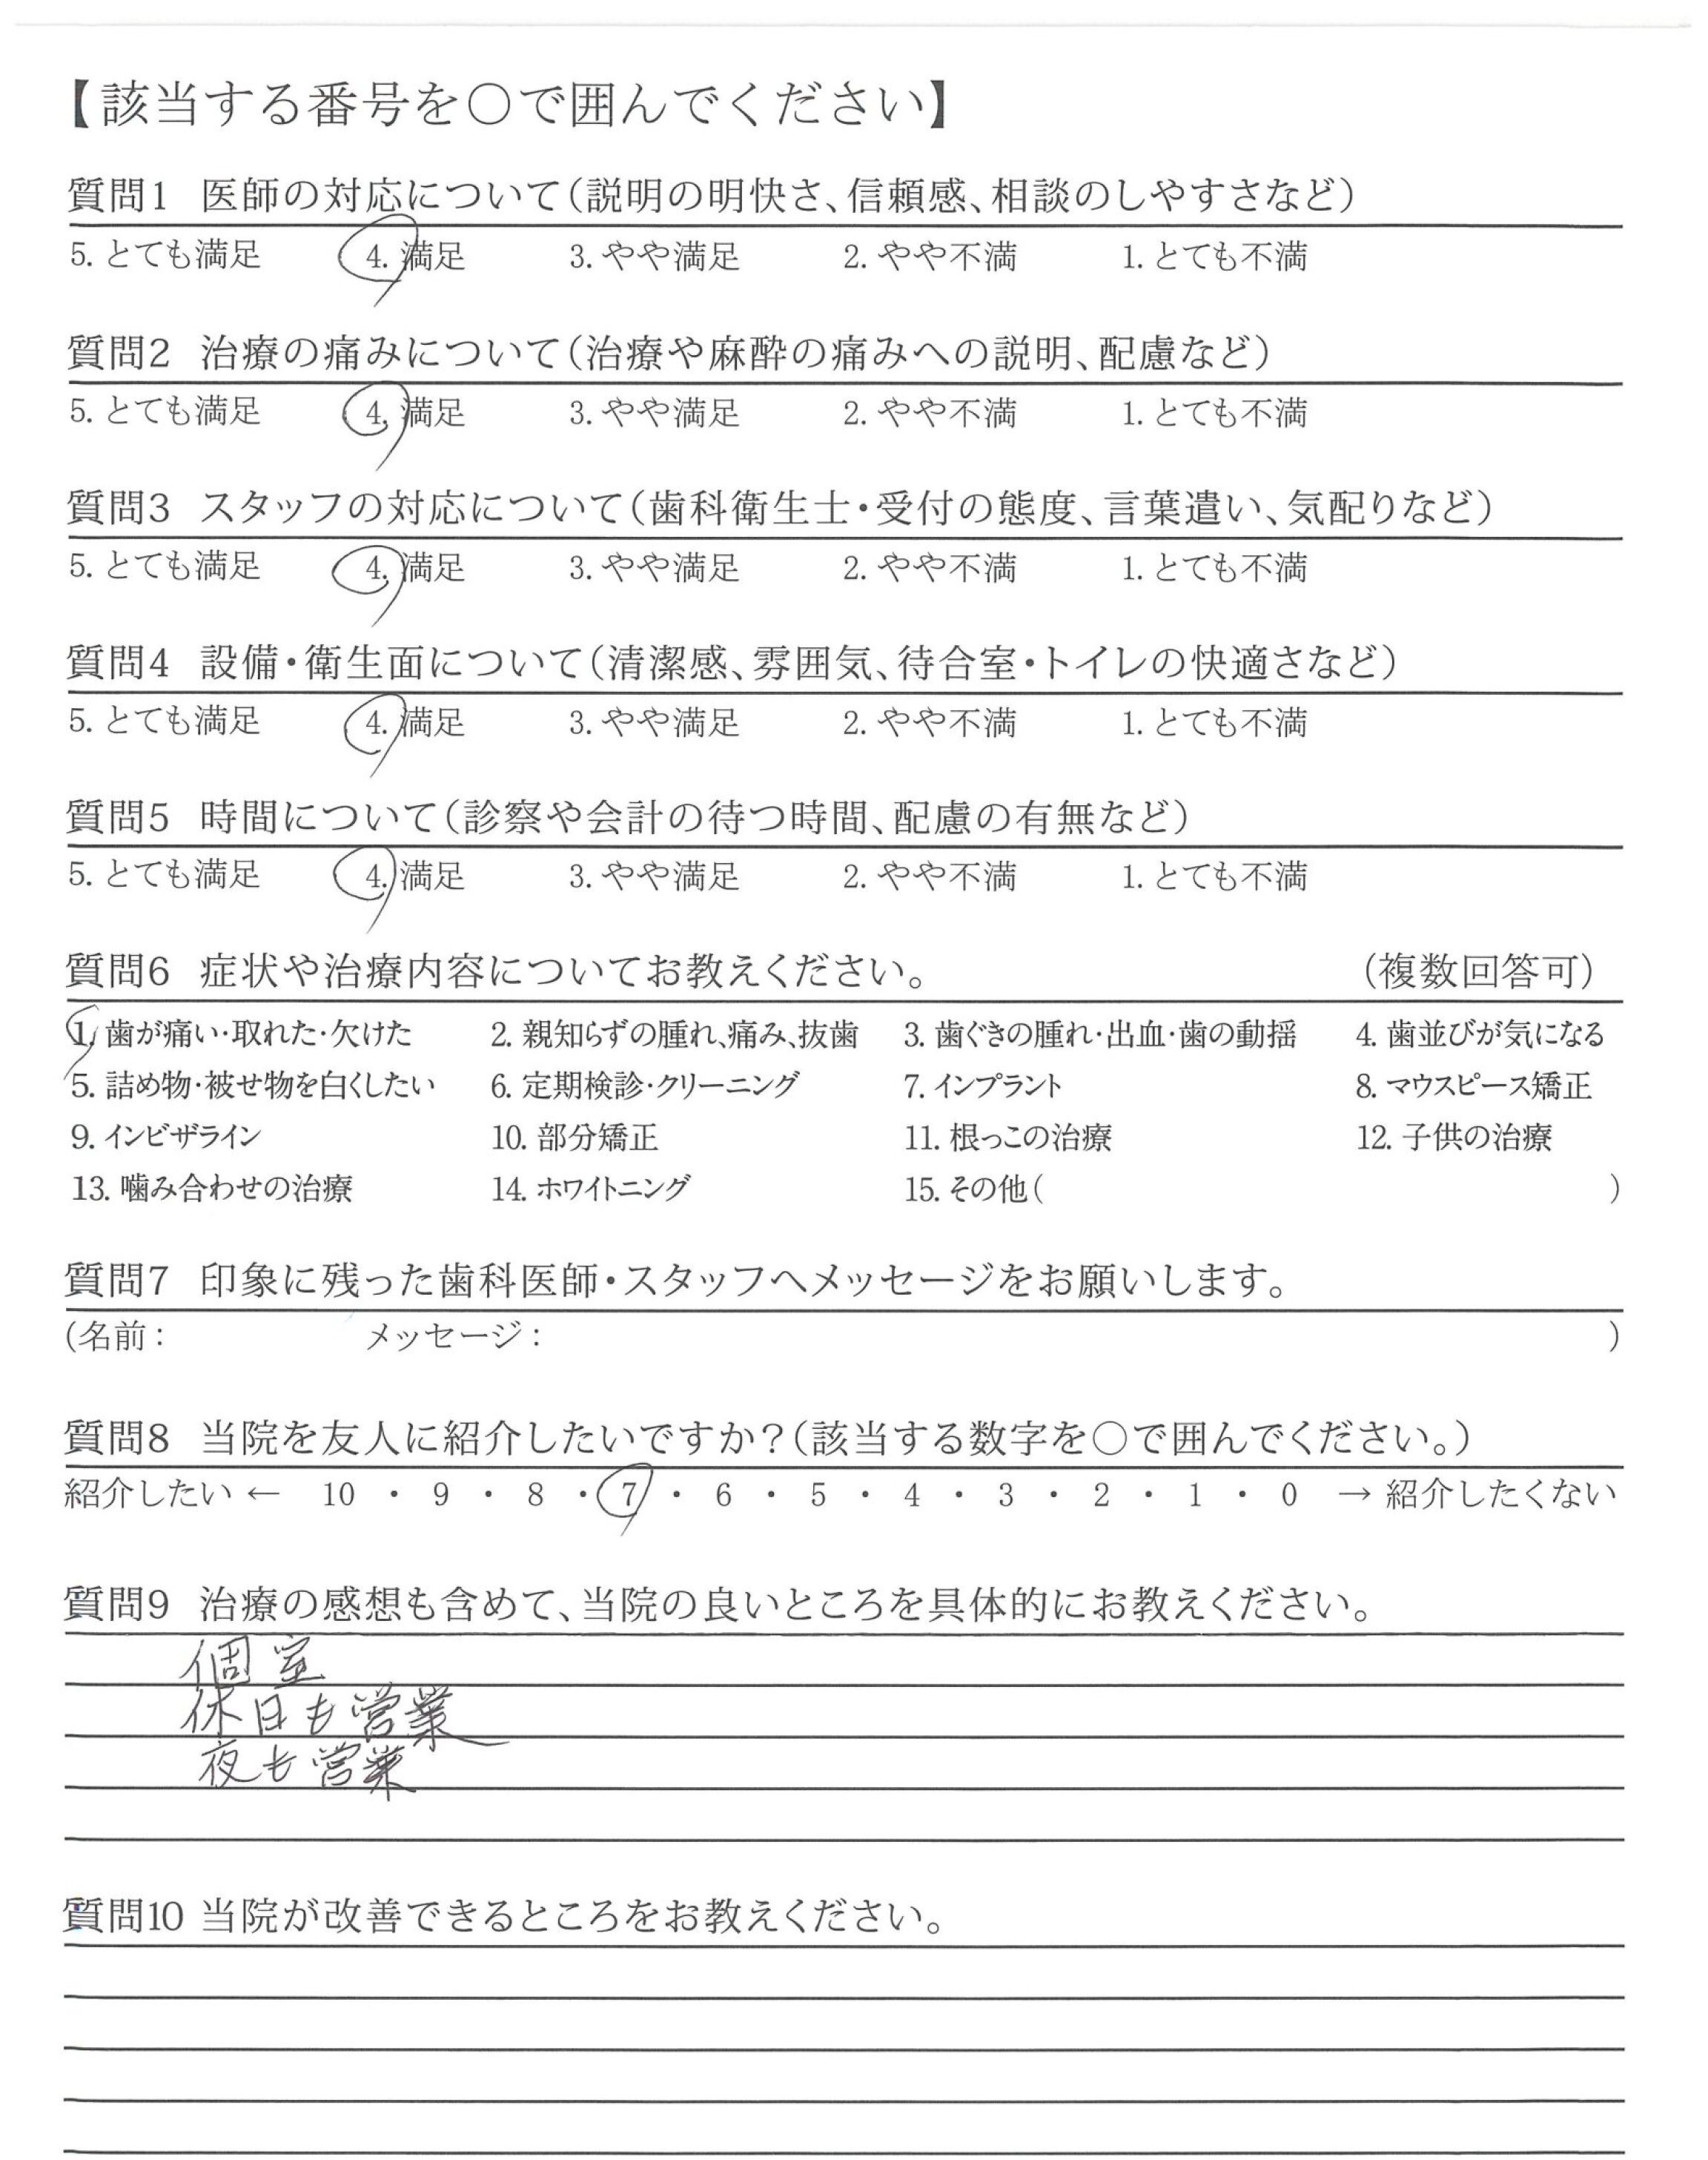 【該当する番号を○で囲んでください】
質問1 医師の対応について（説明の明快さ、信頼感、相談のしやすさなど）
5. とても満足 4. 満足 3. やや満足 2. やや不満 1. とても不満
質問2 治療の痛みについて（治療や麻酔の痛みへの説明、配慮など）
5. とても満足 4. 満足 3. やや満足 2. やや不満 1. とても不満
質問3 スタッフの対応について（歯科衛生士・受付の態度、言葉遣い、気配りなど）
5. とても満足 4. 満足 3. やや満足 2. やや不満 1. とても不満
質問4 設備・衛生面について（清潔感、雰囲気、待合室・トイレの快適さなど）
5. とても満足 4. 満足 3. やや満足 2. やや不満 1. とても不満
質問5 時間について（診察や会計の待つ時間、配慮の有無など）
5. とても満足 4. 満足 3. やや満足 2. やや不満 1. とても不満
質問6 症状や治療内容についてお教えください。 （複数回答可）
1. 歯が痛い・取れた・欠けた 2. 親知らずの腫れ、痛み、抜歯 3. 歯ぐきの腫れ・出血・歯の動揺 4. 歯並びが気になる
5. 詰め物・被せ物を白くしたい 6. 定期検診・クリーニング 7. インプラント 8. マウスピース矯正
9. インビザライン 10. 部分矯正 11. 根っこの治療 12. 子供の治療
13. 噛み合わせの治療 14. ホワイトニング 15. その他（ ）
質問7 印象に残った歯科医師・スタッフへメッセージをお願いします。
（名前： メッセージ： ）
質問8 当院を友人に紹介したいですか？（該当する数字を○で囲んでください。）
紹介したい ← 10 ・ 9 ・ 8 ・ 7 ・ 6 ・ 5 ・ 4 ・ 3 ・ 2 ・ 1 ・ 0 → 紹介したくない
質問9 治療の感想も含めて、当院の良いところを具体的にお教えください。
個室
休日も営業
夜も営業
質問10 当院が改善できるところをお教えください。